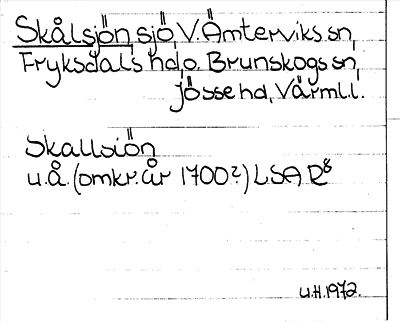 Skålsjön, sjö, V. Ämterviks sn,
Fryksdals hd, o. Brunskogs sn,
Jösse hd, Värml. l.
Skallsiön
u.å. (omkr. år 1700?) LSA R8
U.H. 1972.